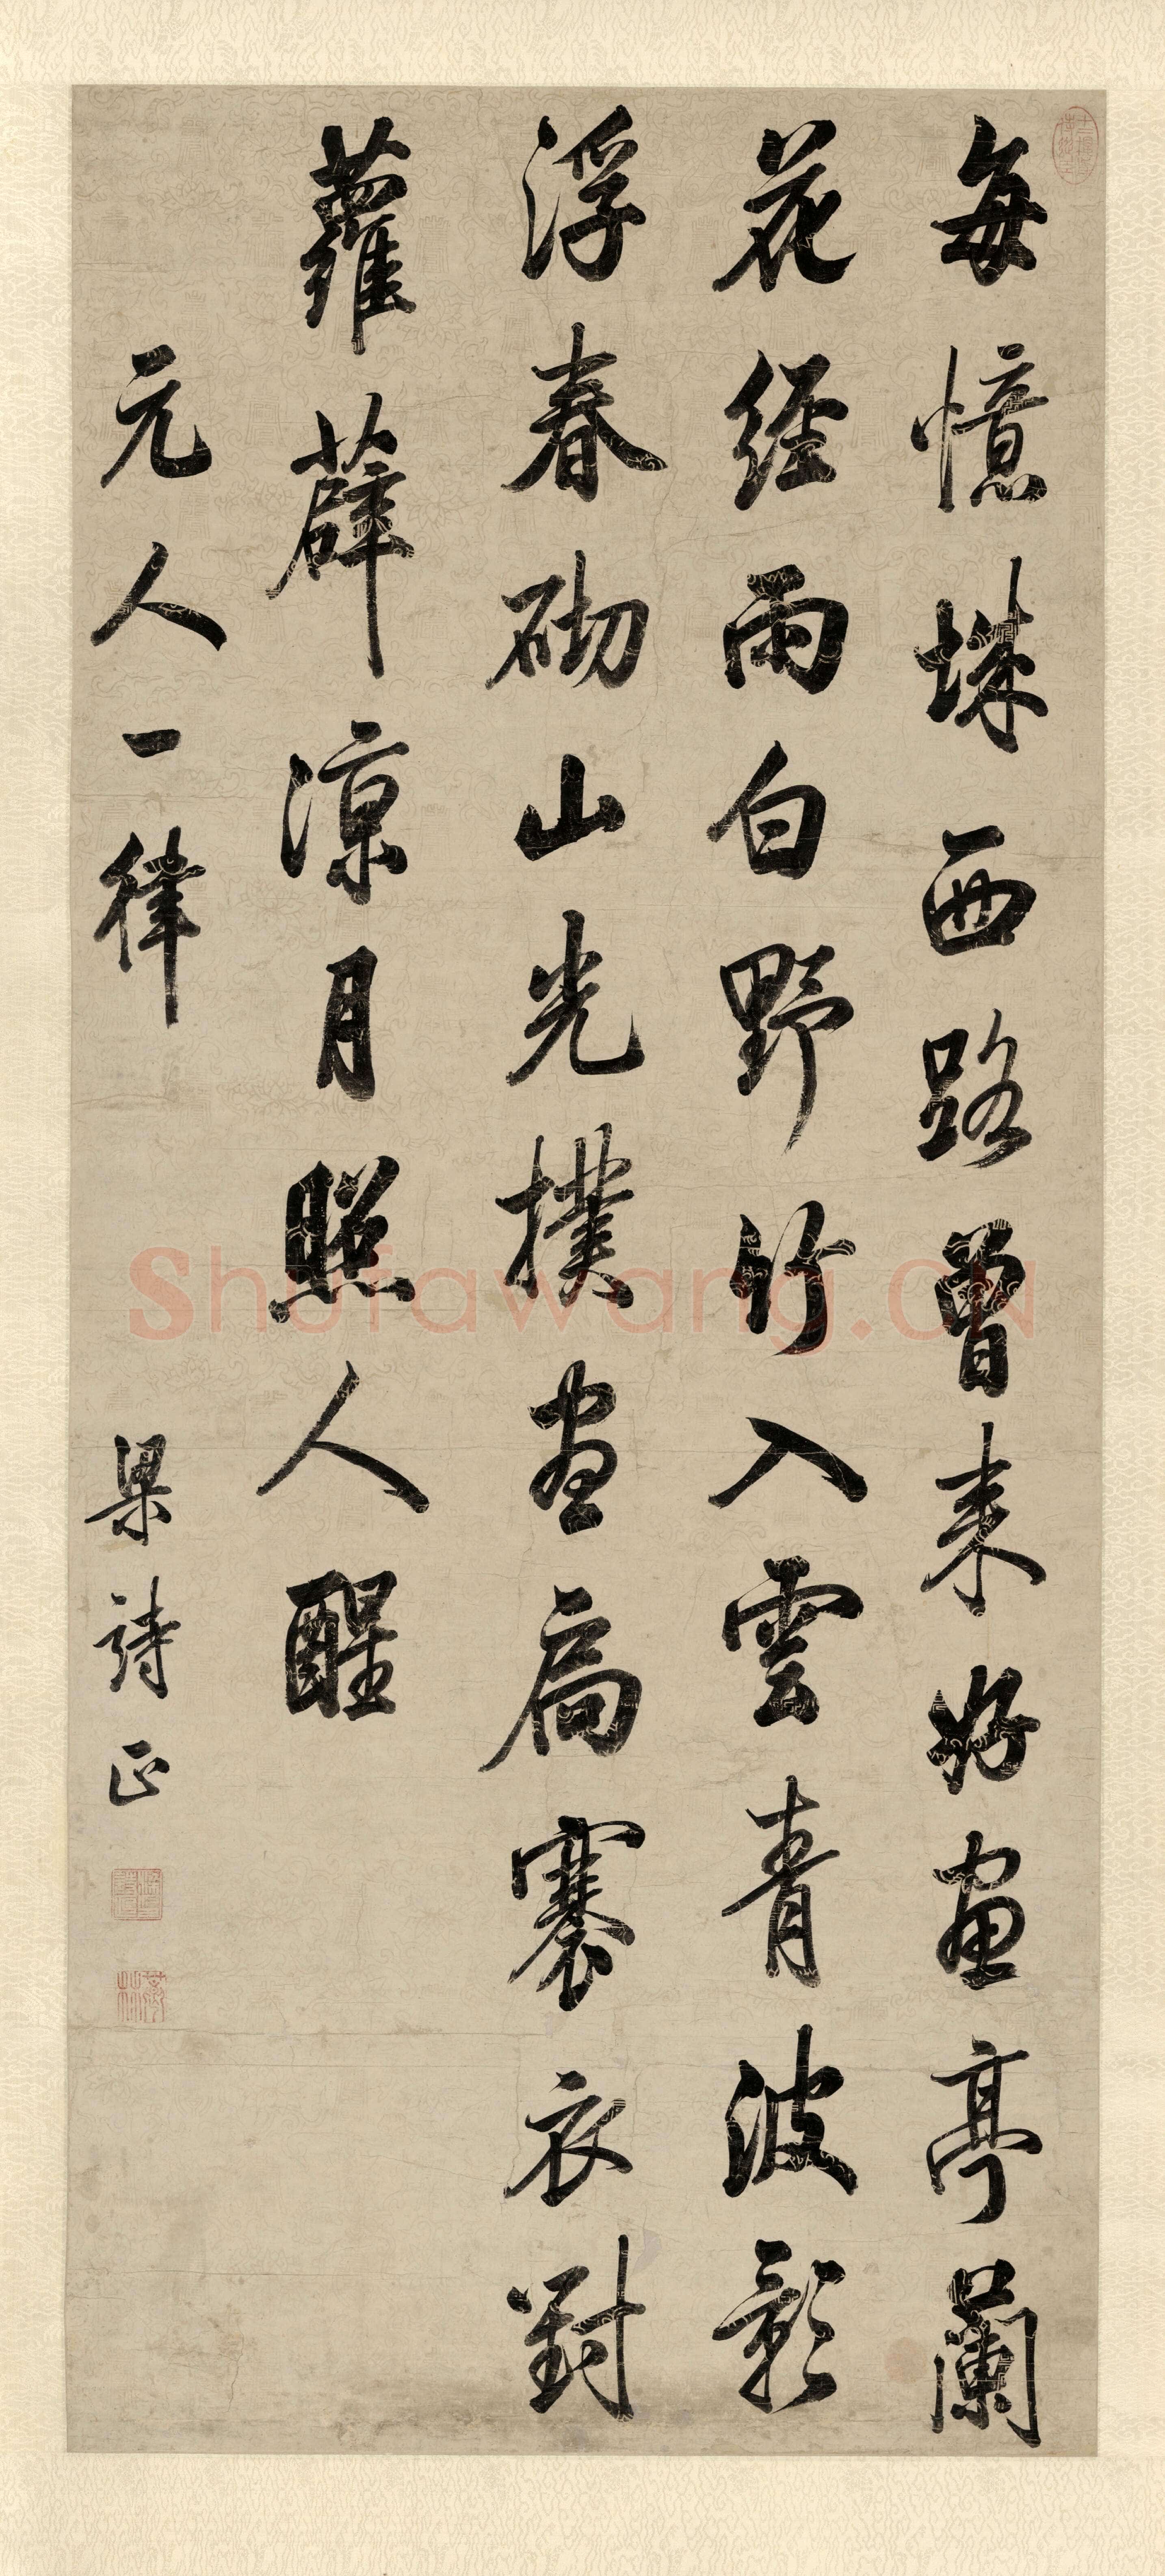 每憶城西路曾来好畫亭蘭
花經雨白野竹入雲青波影
浮春砌山光撲畫扃褰衣對
蘿薜涼月照人醒
元人一律
梁詩正
Shufawang.CN